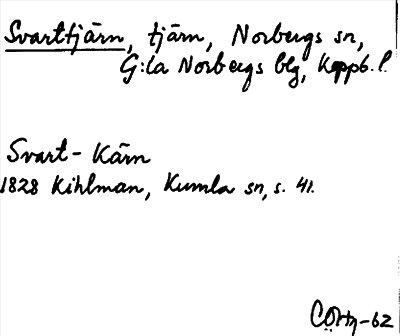 Svarttjärn, tjärn, Norbergs sn,
G:la Norbergs blg, Koppb. l.
Svart-Kärn
1828 Kihlman, Kumla sn, s. 41.
-62